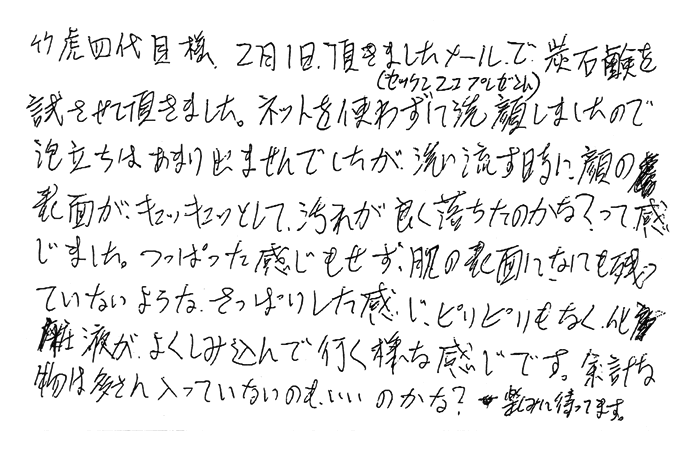 竹虎四代目様、2月1日、頂きましたメールで、炭石鹸を
(セッケン ココ プレゼント)
試させて頂きました。ネットを使わずに洗顔しましたので
泡立ちはあまり出ませんでしたが、洗い流す時に、顔の
表面が、キュッキュッとして、汚れが良く落ちたのかな?って感
じました。つっぱった感じもせず、肌の表面に、なにも残っ
ていないような、さっぱりした感じ、ピリピリもなく、化
粧液が、よくしみ込んで行く様な感じです。余計な
物は多さん入っていないのも、いいのかな?
楽しみに待ってます。